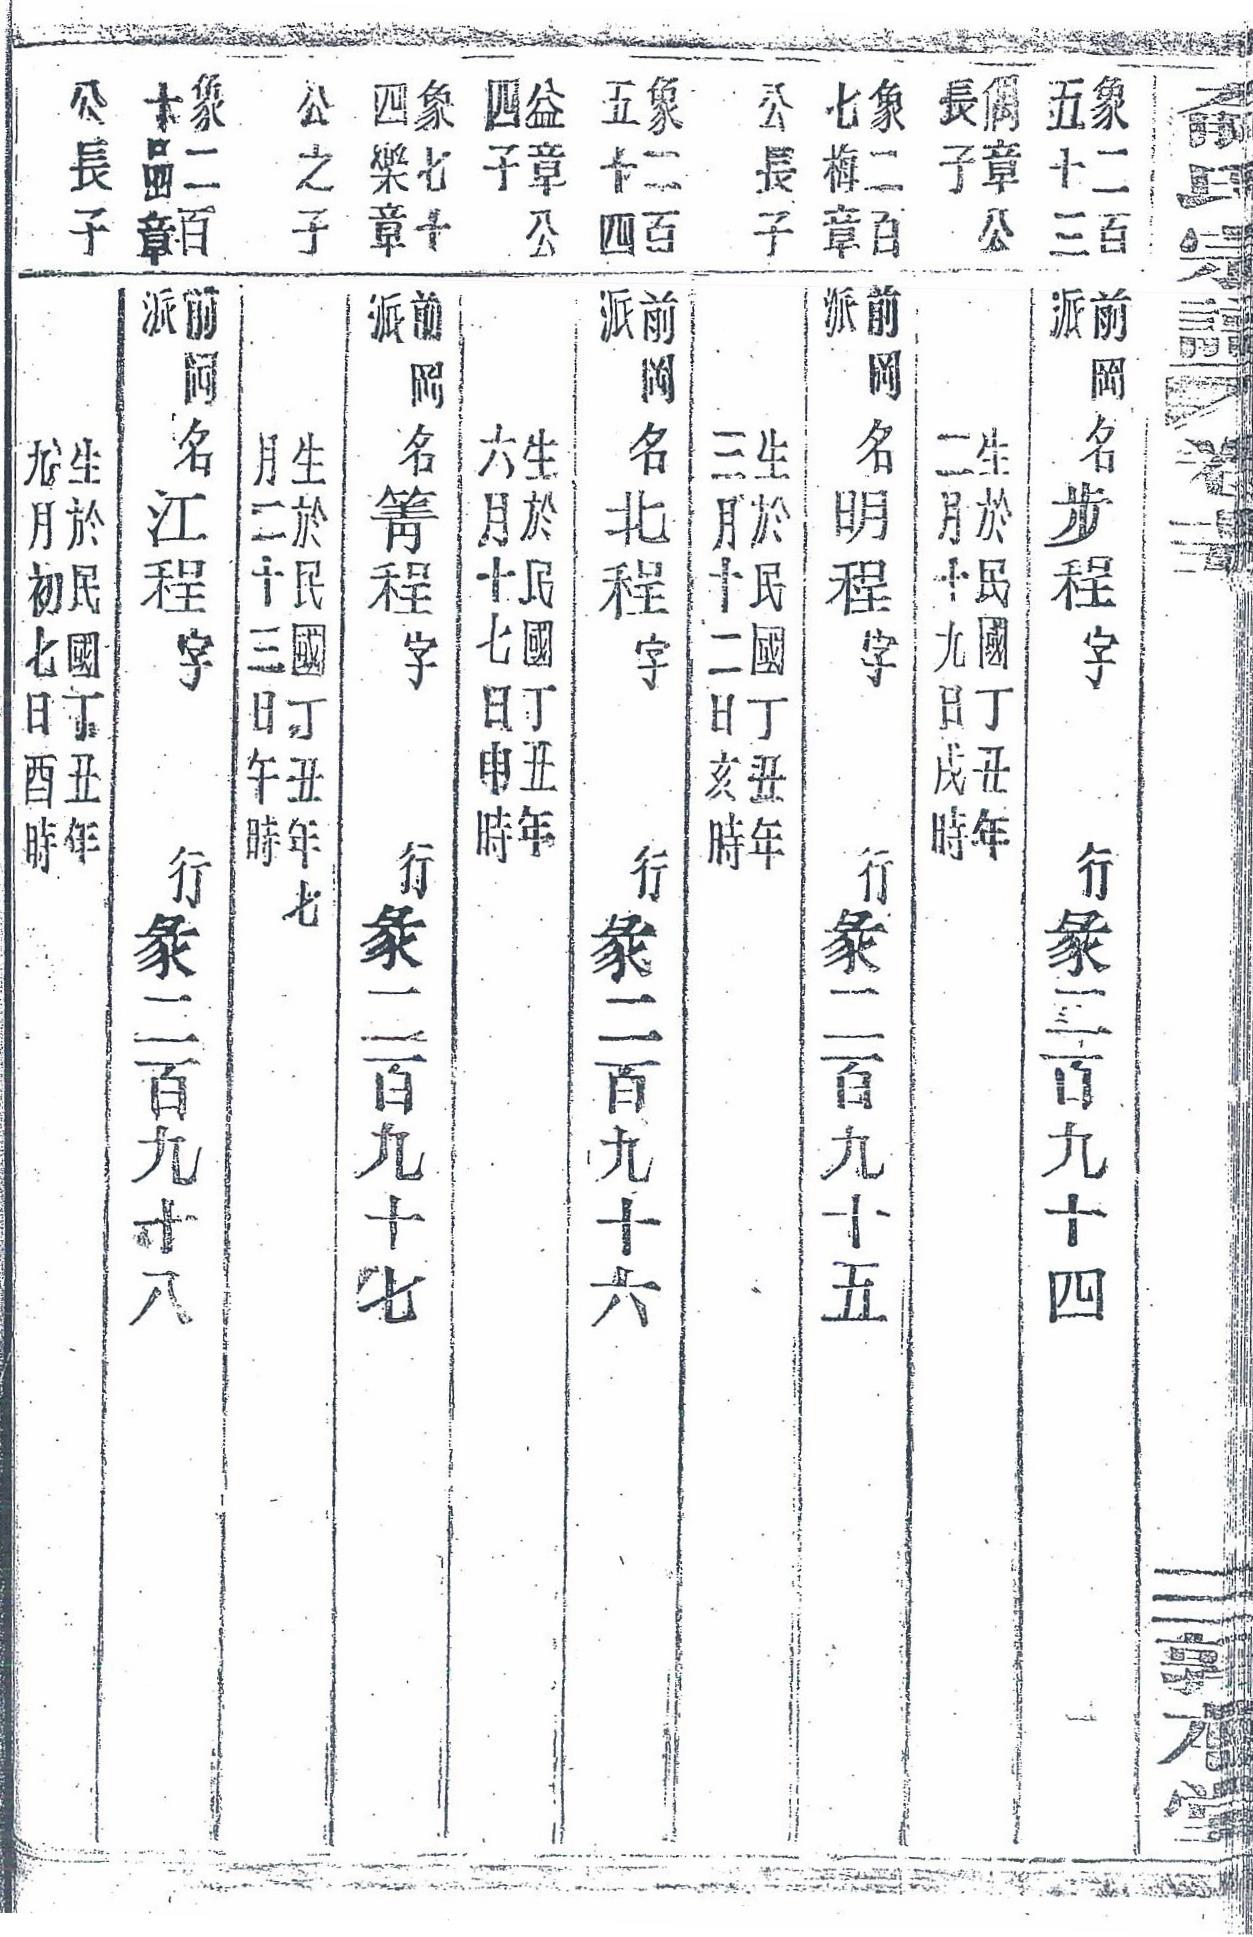 氏宗譜 卷二
象二百
五十三
偶章公
長子
前岡
派
名步程字 行彖二百九十四
生於民國丁丑年
二月十九日戌時
象二百
七梅章
公長子
前岡
派
名明程字 行彖二百九十五
生於民國丁丑年
三月十二日亥時
象二百
五十四
益章公
四子
前岡
派
名北程字 行彖二百九十六
生於民國丁丑年
六月十七日申時
象七十
四樂章
公之子
前岡
派
名箐程字 行彖二百九十七
生於民國丁丑年七
月二十三日午時
象二百
十品章
公長子
前岡
派
名江程字 行彖二百九十八
生於民國丁丑年
九月初七日酉時